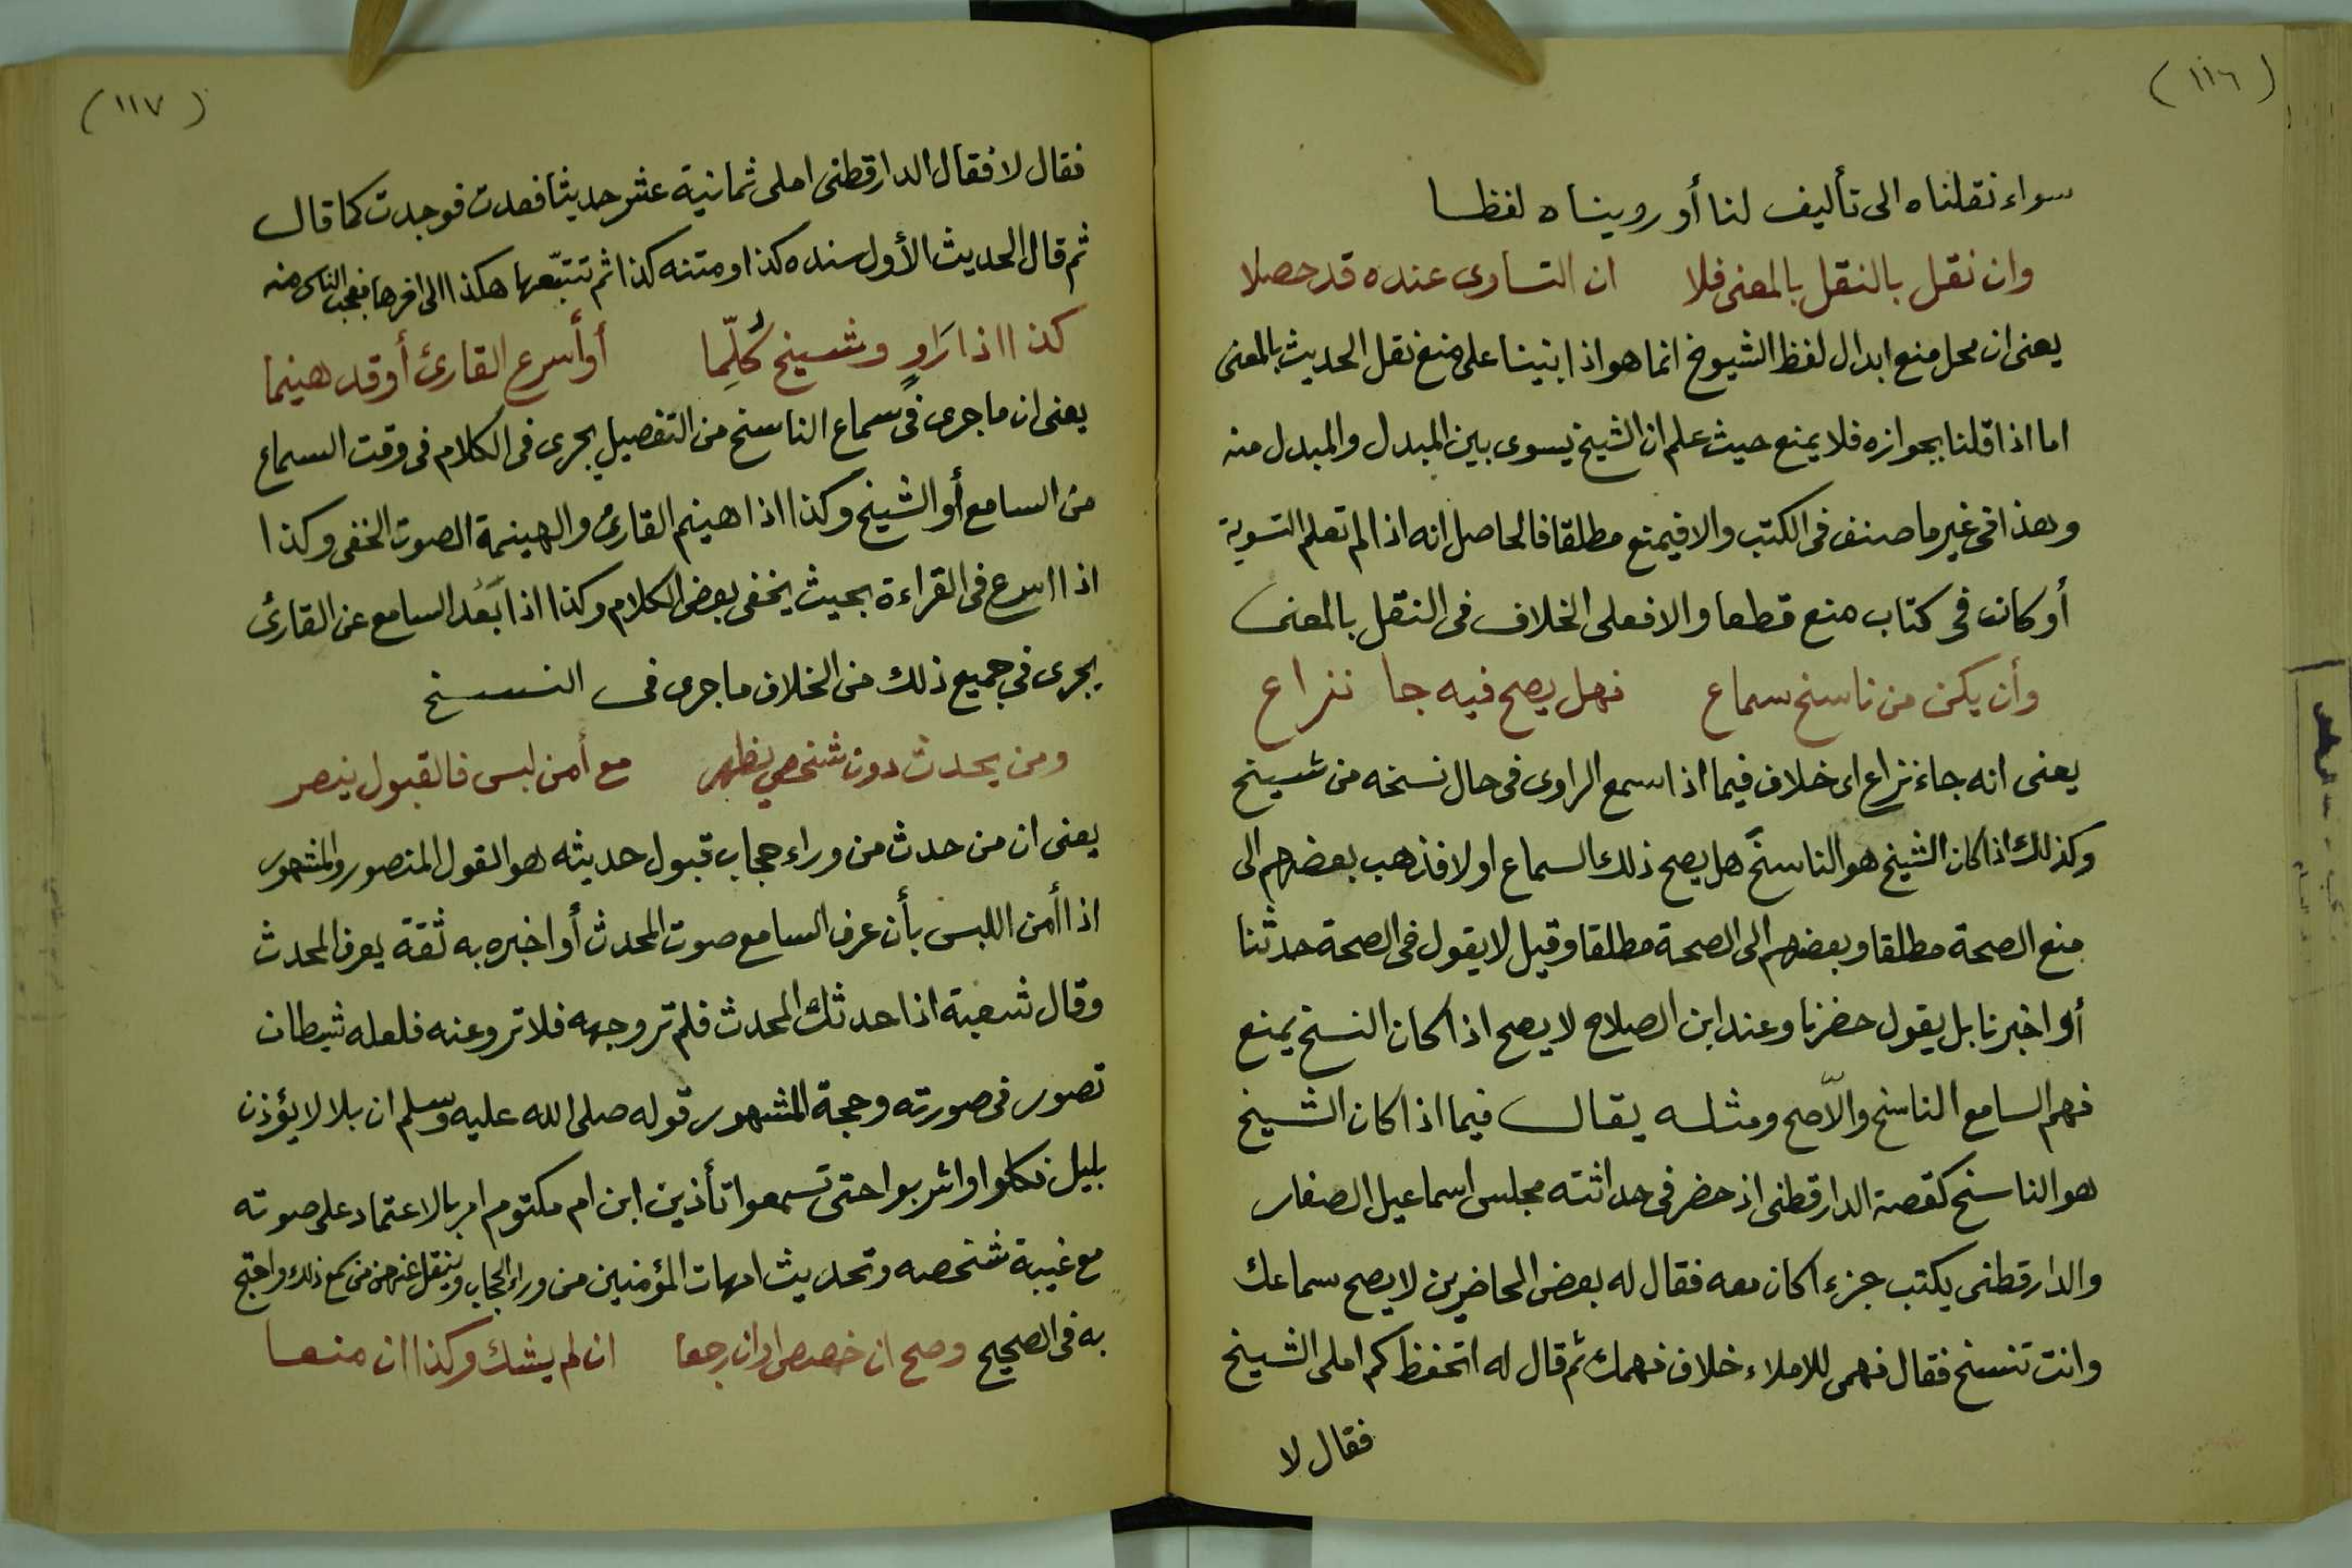 (١١٦)
سواء نقلناه الى تأليف لنا أو رويناه لفظا
وان نقل بالنقل بالمعنى فلا ان التساوى عنده قد حصلا
يعنى ان محل منع ابدال لفظ الشيوخ انما هو اذا بنينا على منع نقل الحديث بالمعنى
اما اذا قلنا بجوازه فلا يمنع حيث علم ان الشيخ يسوى بين المبدل والمبدل منه
وهذا فى غير ما صنف فى الكتب والا فيمتع مطلقا فالحاصل انه اذا لم تعلم التسوية
أو كانت فى كتاب منع قطعا والا فعلى الخلاف فى النقل بالمعنى
وأن يكن من ناسخ سماع فهل يصح فيه جا نزاع
يعنى انه جاء نزاع اى خلاف فيما اذا سمع الراوى فى حال نسخه من شيخ
وكذلك اذا كان الشيخ هو الناسخ هل يصح ذلك السماع او لا فذهب بعضهم الى
منع الصحة مطلقا وبعضهم الى الصحة مطلقا وقيل لا يقول فى الصحة حدثنا
أو اخبرنا بل يقول حضرنا وعند ابن الصلاح لا يصح اذا كان النسخ يمنع
فهم السامع الناسخ والاّ صح ومثله يقال فيما اذا كان الشيخ
هو الناسخ كقصة الدارقطنى اذ حضر فى حداثته مجلس اسماعيل الصفار
والدارقطنى يكتب جزءا كان معه فقال له بعض الحاضرين لا يصح سماعك
وانت تنسخ فقال فهمى للاملاء خلاف فهمك ثم قال له اتحفظ كم املى الشيخ
فقال لا
(١١٧)
فقال لا فقال الدارقطنى املى ثمانية عشر حديثا فعدت فوجدت كما قال
ثم قال الحديث الأول سنده كذا ومتنه كذا ثم تتبّعها هكذا الى اخرها فعجب الناس منه
كذا اذا رَاوٍ وشيخ كُلِّما أو أسرع القارئ أو قد هينما
يعنى ان ما جرى فى سماع الناسخ من التفصيل يجرى فى الكلام فى وقت السماع
من السامع أو الشيخ وكذا اذا هينم القارئ والهينمة الصوت الخفى وكذا
اذا اسرع فى القراءة بحيث يخفى بعض الكلام وكذا اذا بَعُد السامع عن القارئ
يجرى فى جميع ذلك من الخلاف ما جرى فى النسخ
ومن يحدث دون شخص يظهر مع أمن لبس فالقبول ينصر
يعنى ان من حدث من وراء حجاب قبول حديثه هو القول المنصور والمشهور
اذا أمن اللبس بأن عرف السامع صوت المحدث أو اخبره به ثقة يعرف المحدث
وقال شعبة اذا حدثك المحدث فلم تر وجهه فلا ترو عنه فلعله شيطان
تصور فى صورته وحجة المشهور قوله صلى الله عليه وسلم ان بلالا يؤذن
بليل فكلوا واشربوا حتى تسمعوا تأذين ابن ام مكتوم امر بالاعتماد على صوته
مع غيبة شخصه وتحديث امهات المؤمنين من وراء الحجاب وينقل عنهن من سمع ذلك واحتج
به فى الصحيح وصح ان خصص او ان رجعا ان لم يشك وكذا ان منعا